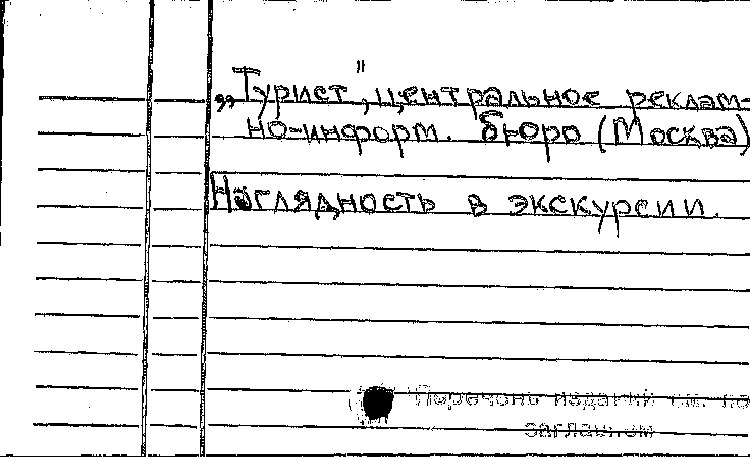 „Турист", центральное реклам-
но-информ. бюро (Москва)
Наглядность в экскурсии.
Перечень изданий см. по
заглавиям